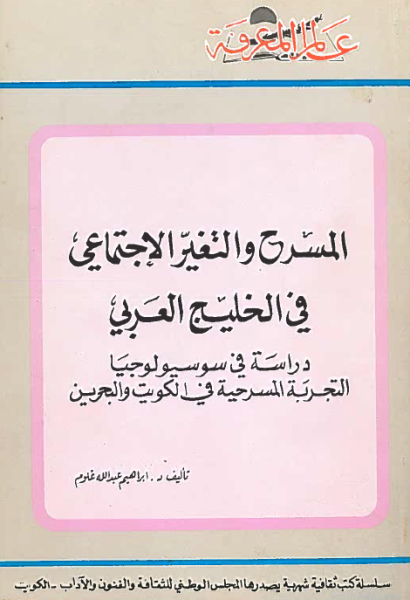 عالم المعرفة
المسرح والتغيّر الإجتماعي
في الخليج العربي
دراسة في سوسيولوجيا
التجربة المسرحية في الكويت والبحرين
تأليف د. ابراهيم عبدالله غلوم
سلسلة كتب ثقافية شهرية يصدرها المجلس الوطني للثقافة والفنون والآداب - الكويت